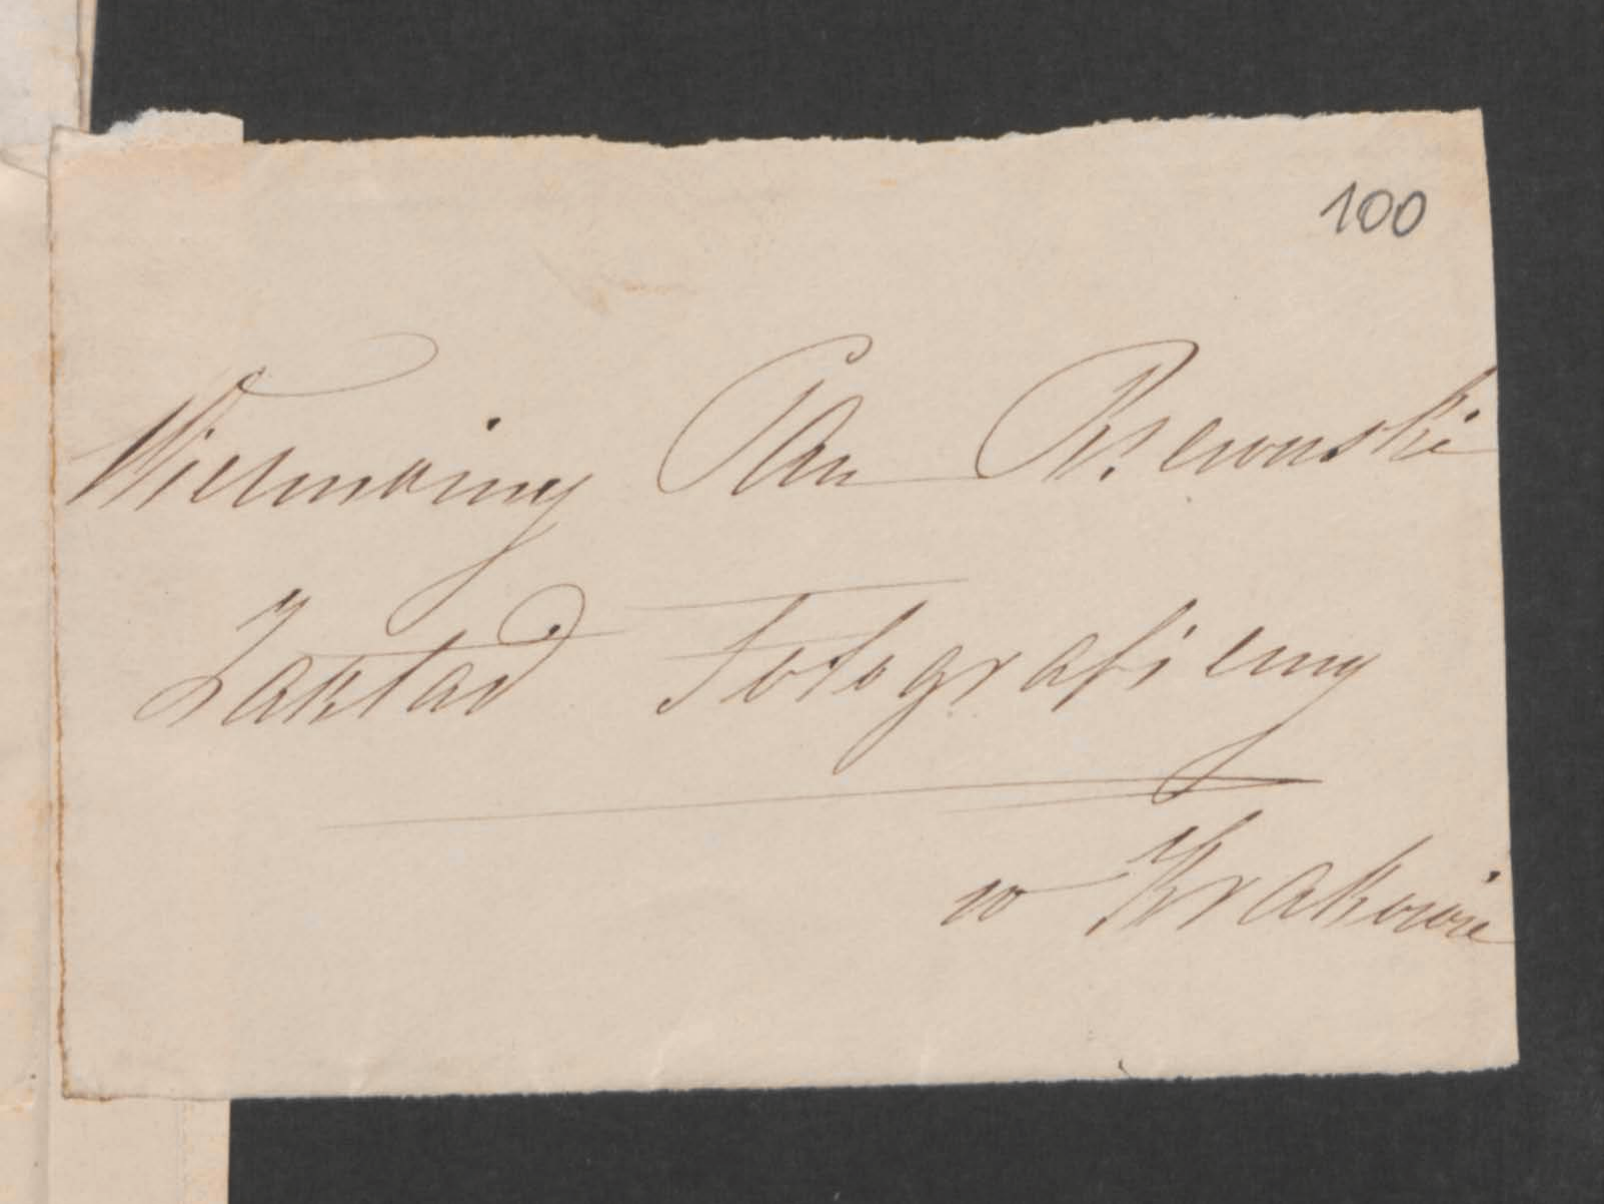 100
Wielmożny Pan Rzewuski
Zakład Fotograficzny
w Krakowie